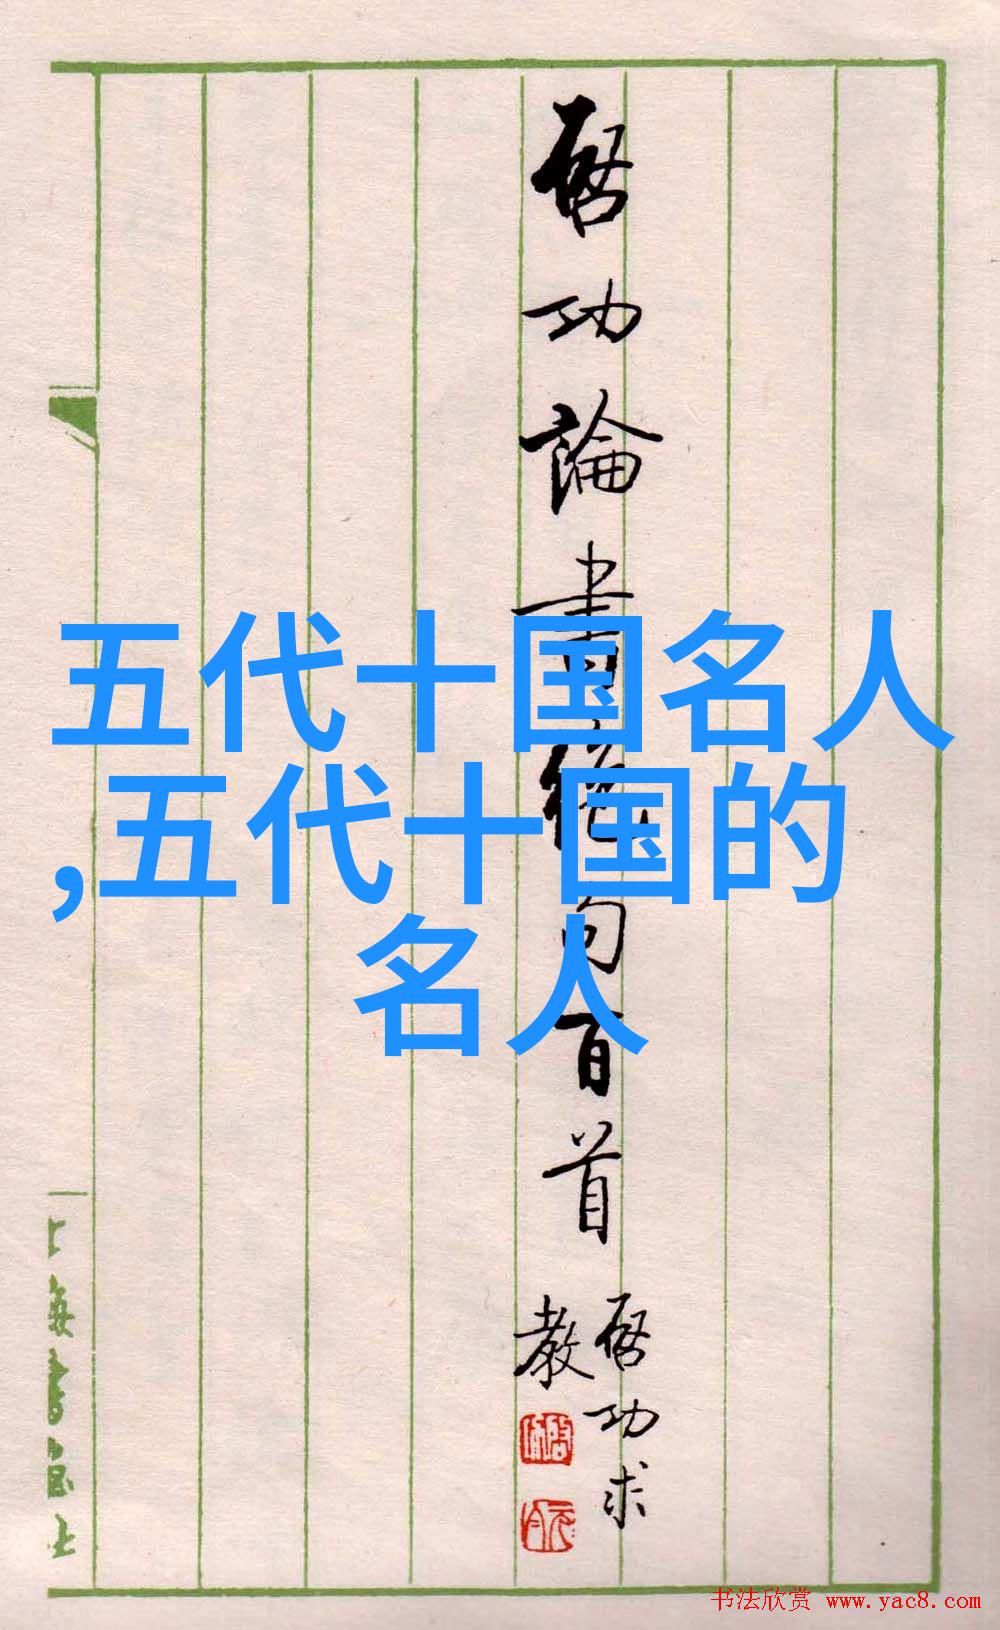 啓功論書絶句百首
啓功求
教
五代十国名人
,五代十国的
名人
上海書画社
书法欣赏 www.yac8.com